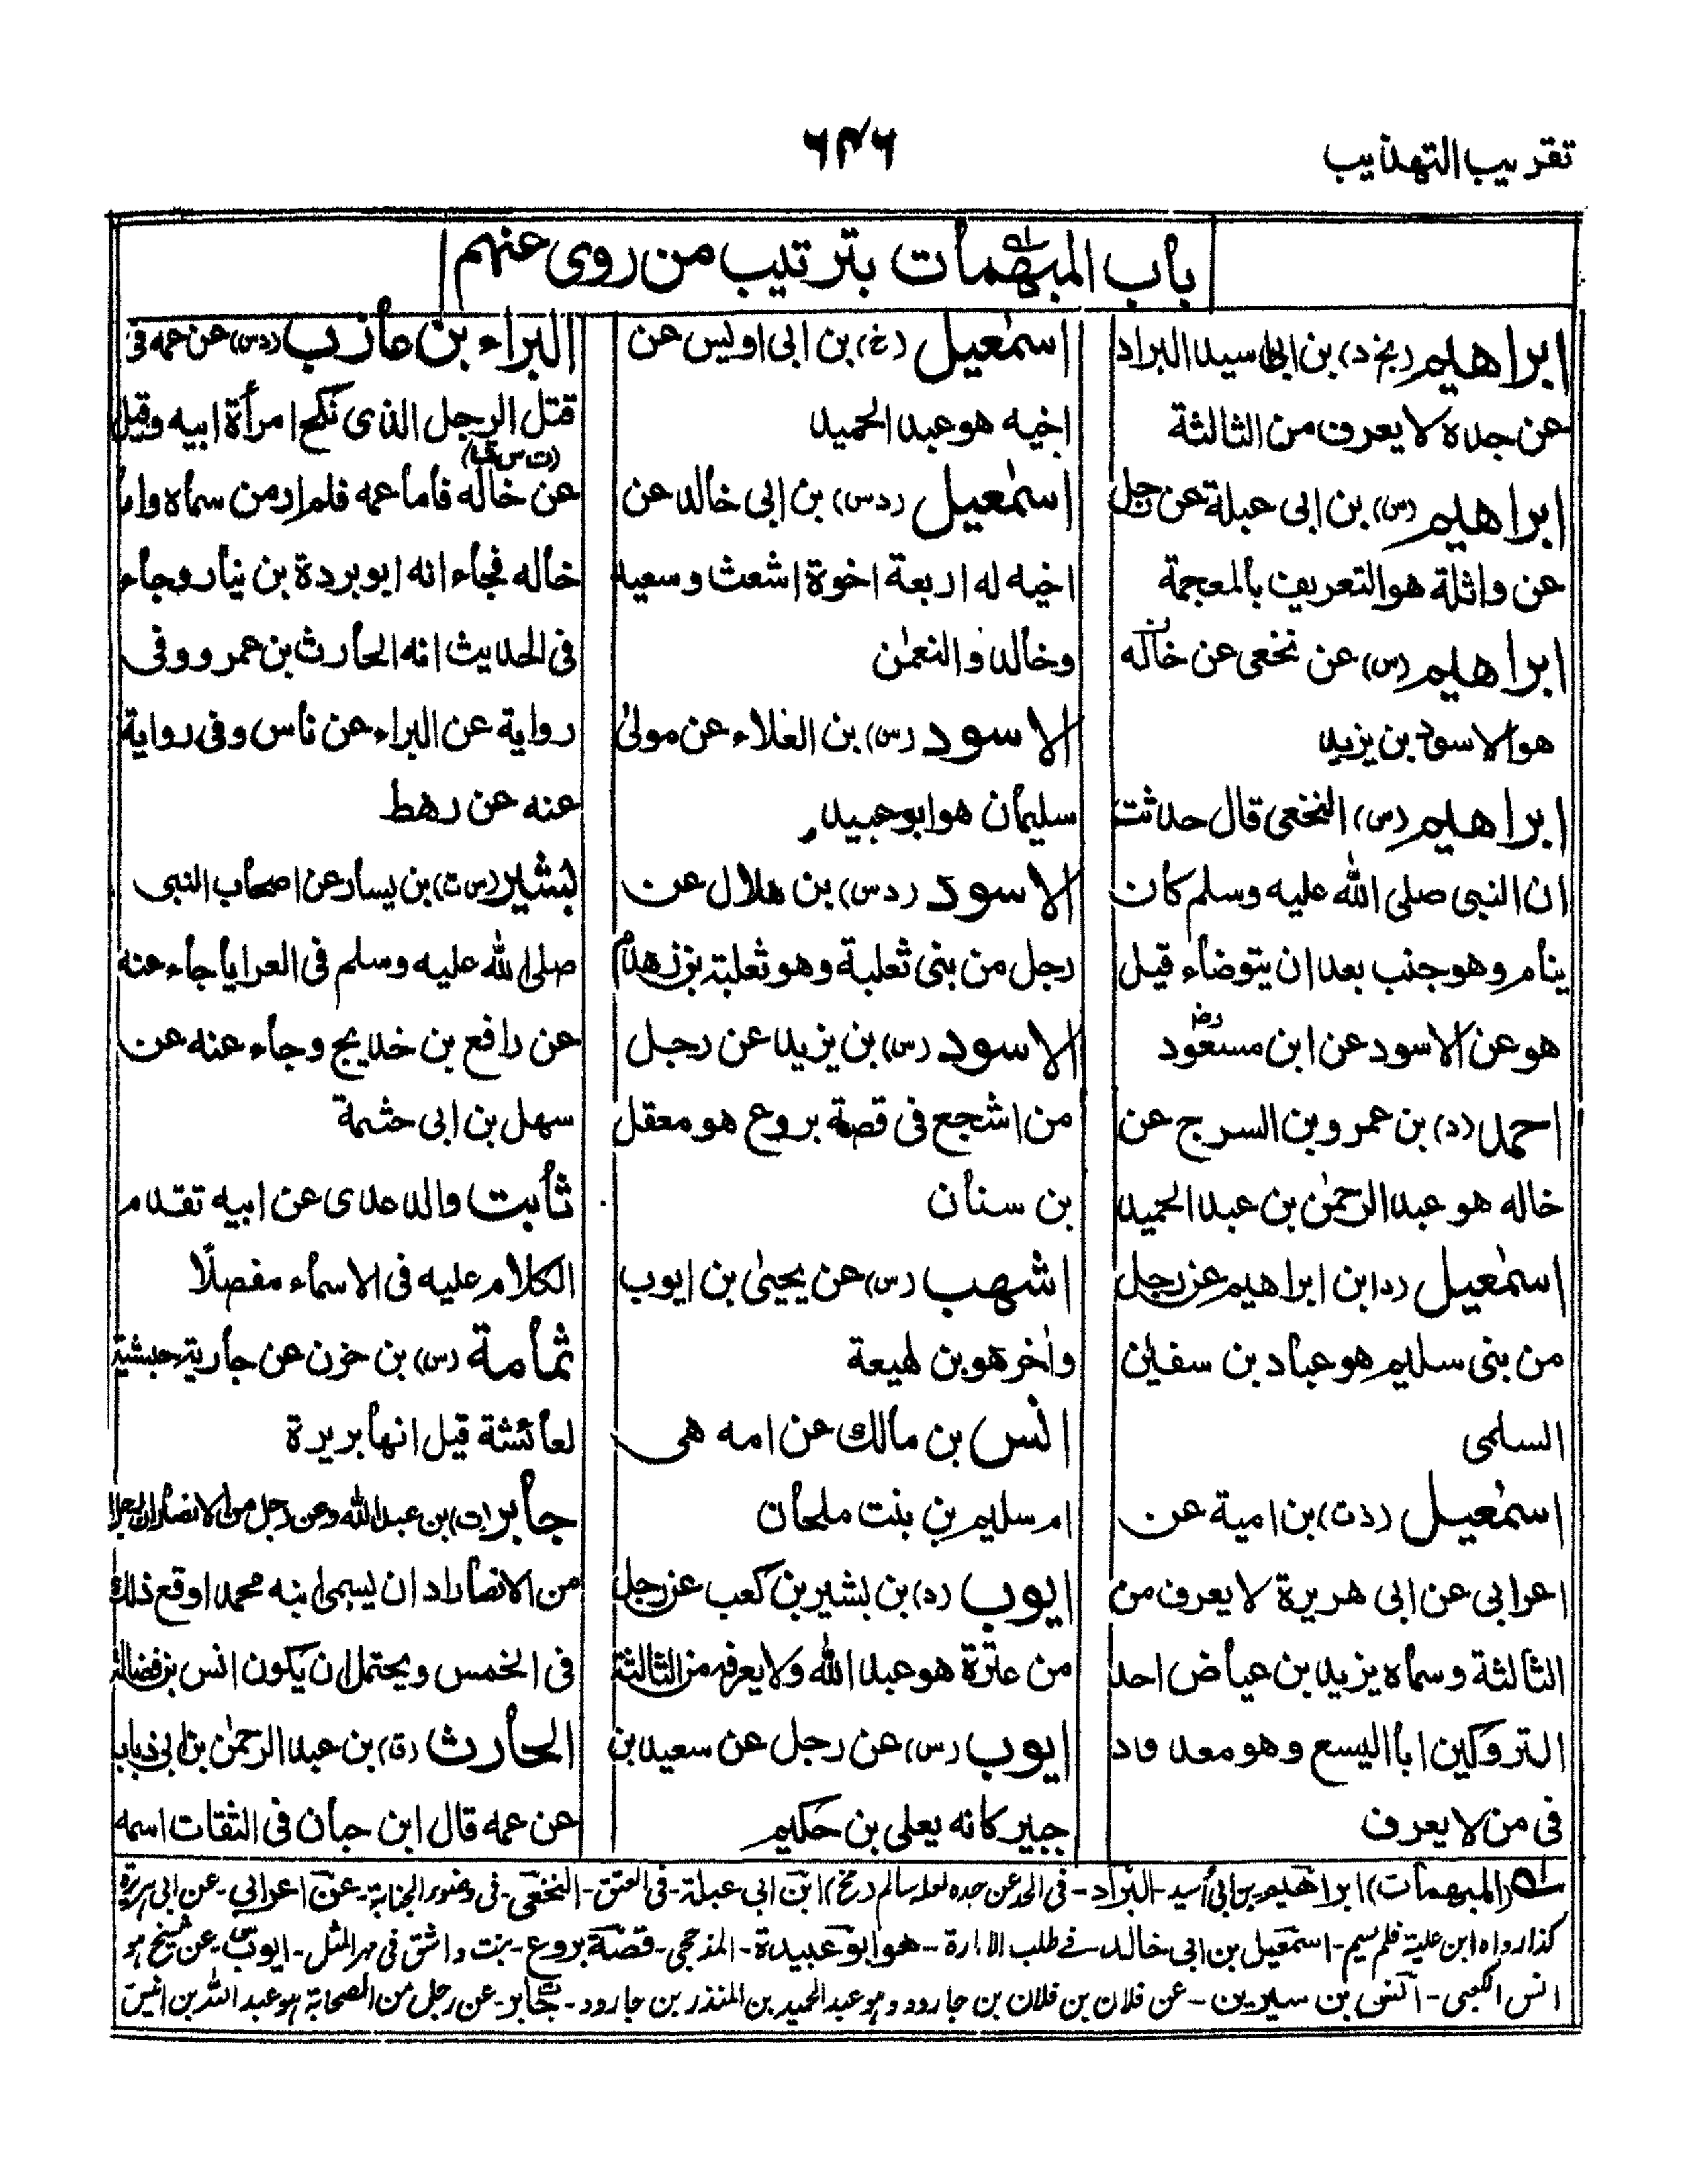 تقريب التهذيب
۶۴۶
باب المبهمات بترتيب من روى عنهم
ابراهيم (بخ د) بن ابى اسيد البراد
عن جده لا يعرف من الثالثة
ابراهيم (س) بن ابى عبلة عن رجل
عن واثلة هو التعريف بالمعجمة
ابراهيم (س) عن نخعى عن خاله
هو الاسود بن يزيد
ابراهيم (س) النخعى قال حدثت
ان النبى صلى الله عليه وسلم كان
ينام وهو جنب بعد ان يتوضاء قيل
هو عن الاسود عن ابن مسعود رض
احمد (د) بن عمرو بن السرج عن
خاله هو عبد الرحمٰن بن عبد الحميد
اسمٰعيل (د) ابن ابراهيم عن رجل
من بنى سليم هو عباد بن سفيٰن
السلمى
اسمٰعيل (د ت) بن امية عن
اعرابى عن ابى هريرة لا يعرف من
الثالثة وسماه يزيد بن عياض احد
التروكين ابا اليسع وهو معدود
فى من لا يعرف
اسمٰعيل (خ) بن ابى اويس عن
اخيه هو عبد الحميد
اسمٰعيل (د س) بن ابى خالد عن
اخيه له اربعة اخوة اشعث وسعيد
وخالد والنعمٰن
الاسود (س) بن العلاء عن مولىٰ
سليمان هو ابو عبيد
الاسود (د س) بن هلال عن
رجل من بنى ثعلبة وهو ثعلبة بن زهدم
الاسود (س) بن يزيد عن رجل
من اشجع فى قصة بروع هو معقل
بن سنان
اشهب (س) عن يحيىٰ بن ايوب
واٰخر هو بن لهيعة
انس بن مالك عن امه هى
ام سليم بن بنت ملحان
ايوب (د) بن بشير بن كعب عن رجل
من عنزة هو عبد الله ولا يعرف من الثالثة
ايوب (س) عن رجل عن سعيد بن
جبير كانه يعلى بن حكيم
البراء بن عازب (د س) عن عمه فى
قتل الرجل الذى نكح امرأة ابيه وقيل
عن خاله (ت س ق) فاما عمه فلم ار من سماه واما
خاله فجاء انه ابو بردة بن نيار وجاء
فى الحديث انه الحارث بن عمرو وفى
رواية عن البراء عن ناس وفى رواية
عنه عن رهط
بشير (س ت) بن يسار عن اصحاب النبى
صلى الله عليه وسلم فى العرايا جاء عنه
عن رافع بن خديج وجاء عنه عن
سهل بن ابى حثمة
ثابت والد عدى عن ابيه تقدم
الكلام عليه فى الاسماء مفصلًا
ثمامة (س) بن حزن عن جارية حبشية
لعائشة قيل انها بريرة
جابر (ت) بن عبد الله وعن رجل من الانصار ان رجلا
من الانصار اراد ان يسمى ابنه محمدا وقع ذلك
فى الخمس ويحتمل ان يكون انس بن فضالة
الحارث (ق) بن عبد الرحمٰن بن ابى ذباب
عن عمه قال ابن حبان فى الثقات اسمه
(المبهمات) ابراهيم بن ابى أسيد - البراد - فى الحد عن جده لعله سالم (بخ) ابن ابى عبلة - فى العتق - النخعى - فى وضوء الجنابة - عن اعرابي - عن ابى هريرة
كذا رواه ابن علية فلم يسم - اسمعيل بن ابى خالد - فى طلب الامارة - هو ابو عبيدة - المذحجى - قصة بروع - بنت واشق فى مهر المثل - ايوب - عن شيخ هو
انس الكعبى - انس بن سيرين - عن فلان بن فلان بن جارود وهو عبد الحميد بن المنذر بن جارود - جابر - عن رجل من الصحابة هو عبد الله بن انيس